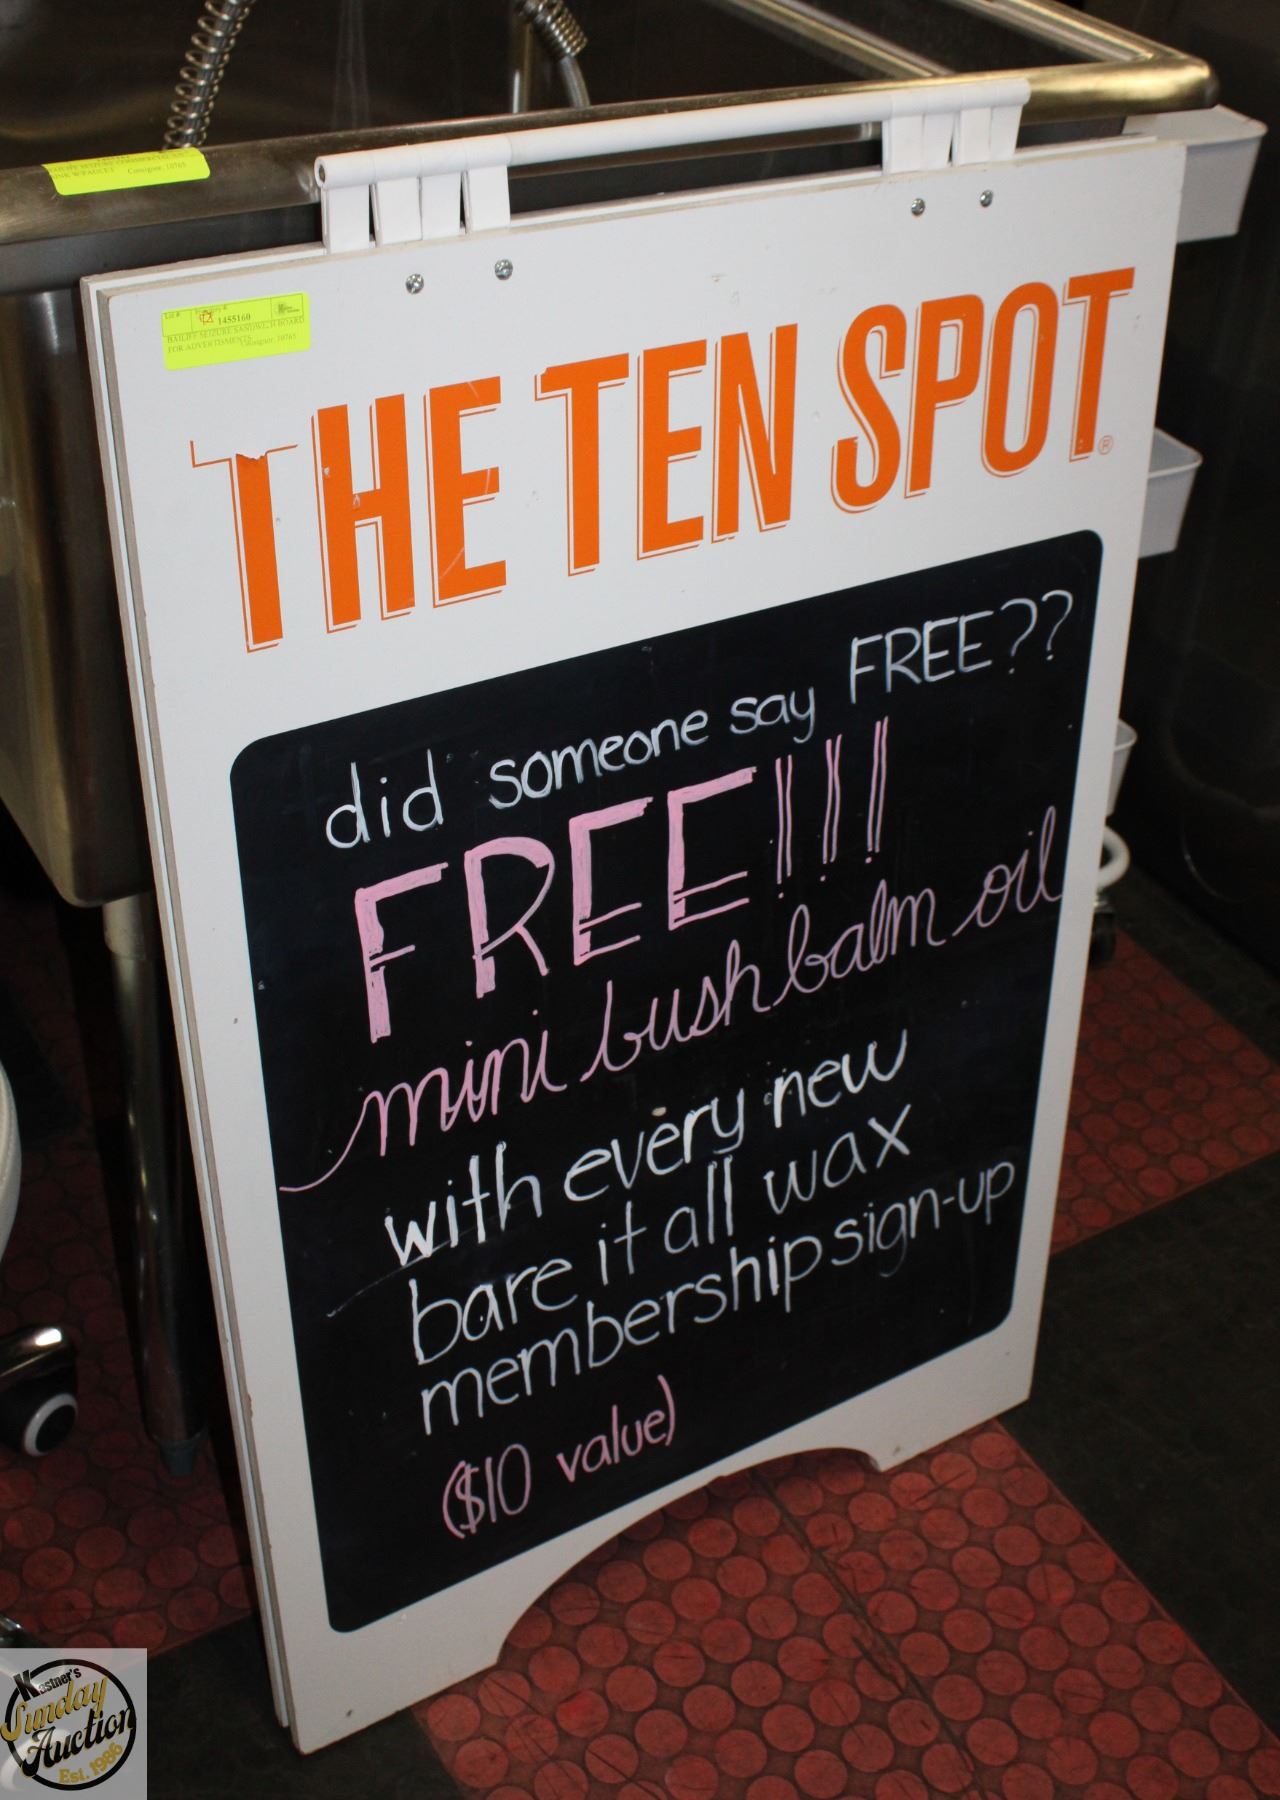 SINK W/FAUCET Consignor: 10765
Lot #
1455160
BAILIFF SEIZURE SANDWICH BOARD
FOR ADVERTISMENTS Consignor: 10765
THE TEN SPOT®
did someone say FREE??
FREE!!!
mini bush balm oil
with every new
bare it all wax
membership sign-up
($10 value)
Kastner's
Sunday
Auction
Est. 1986